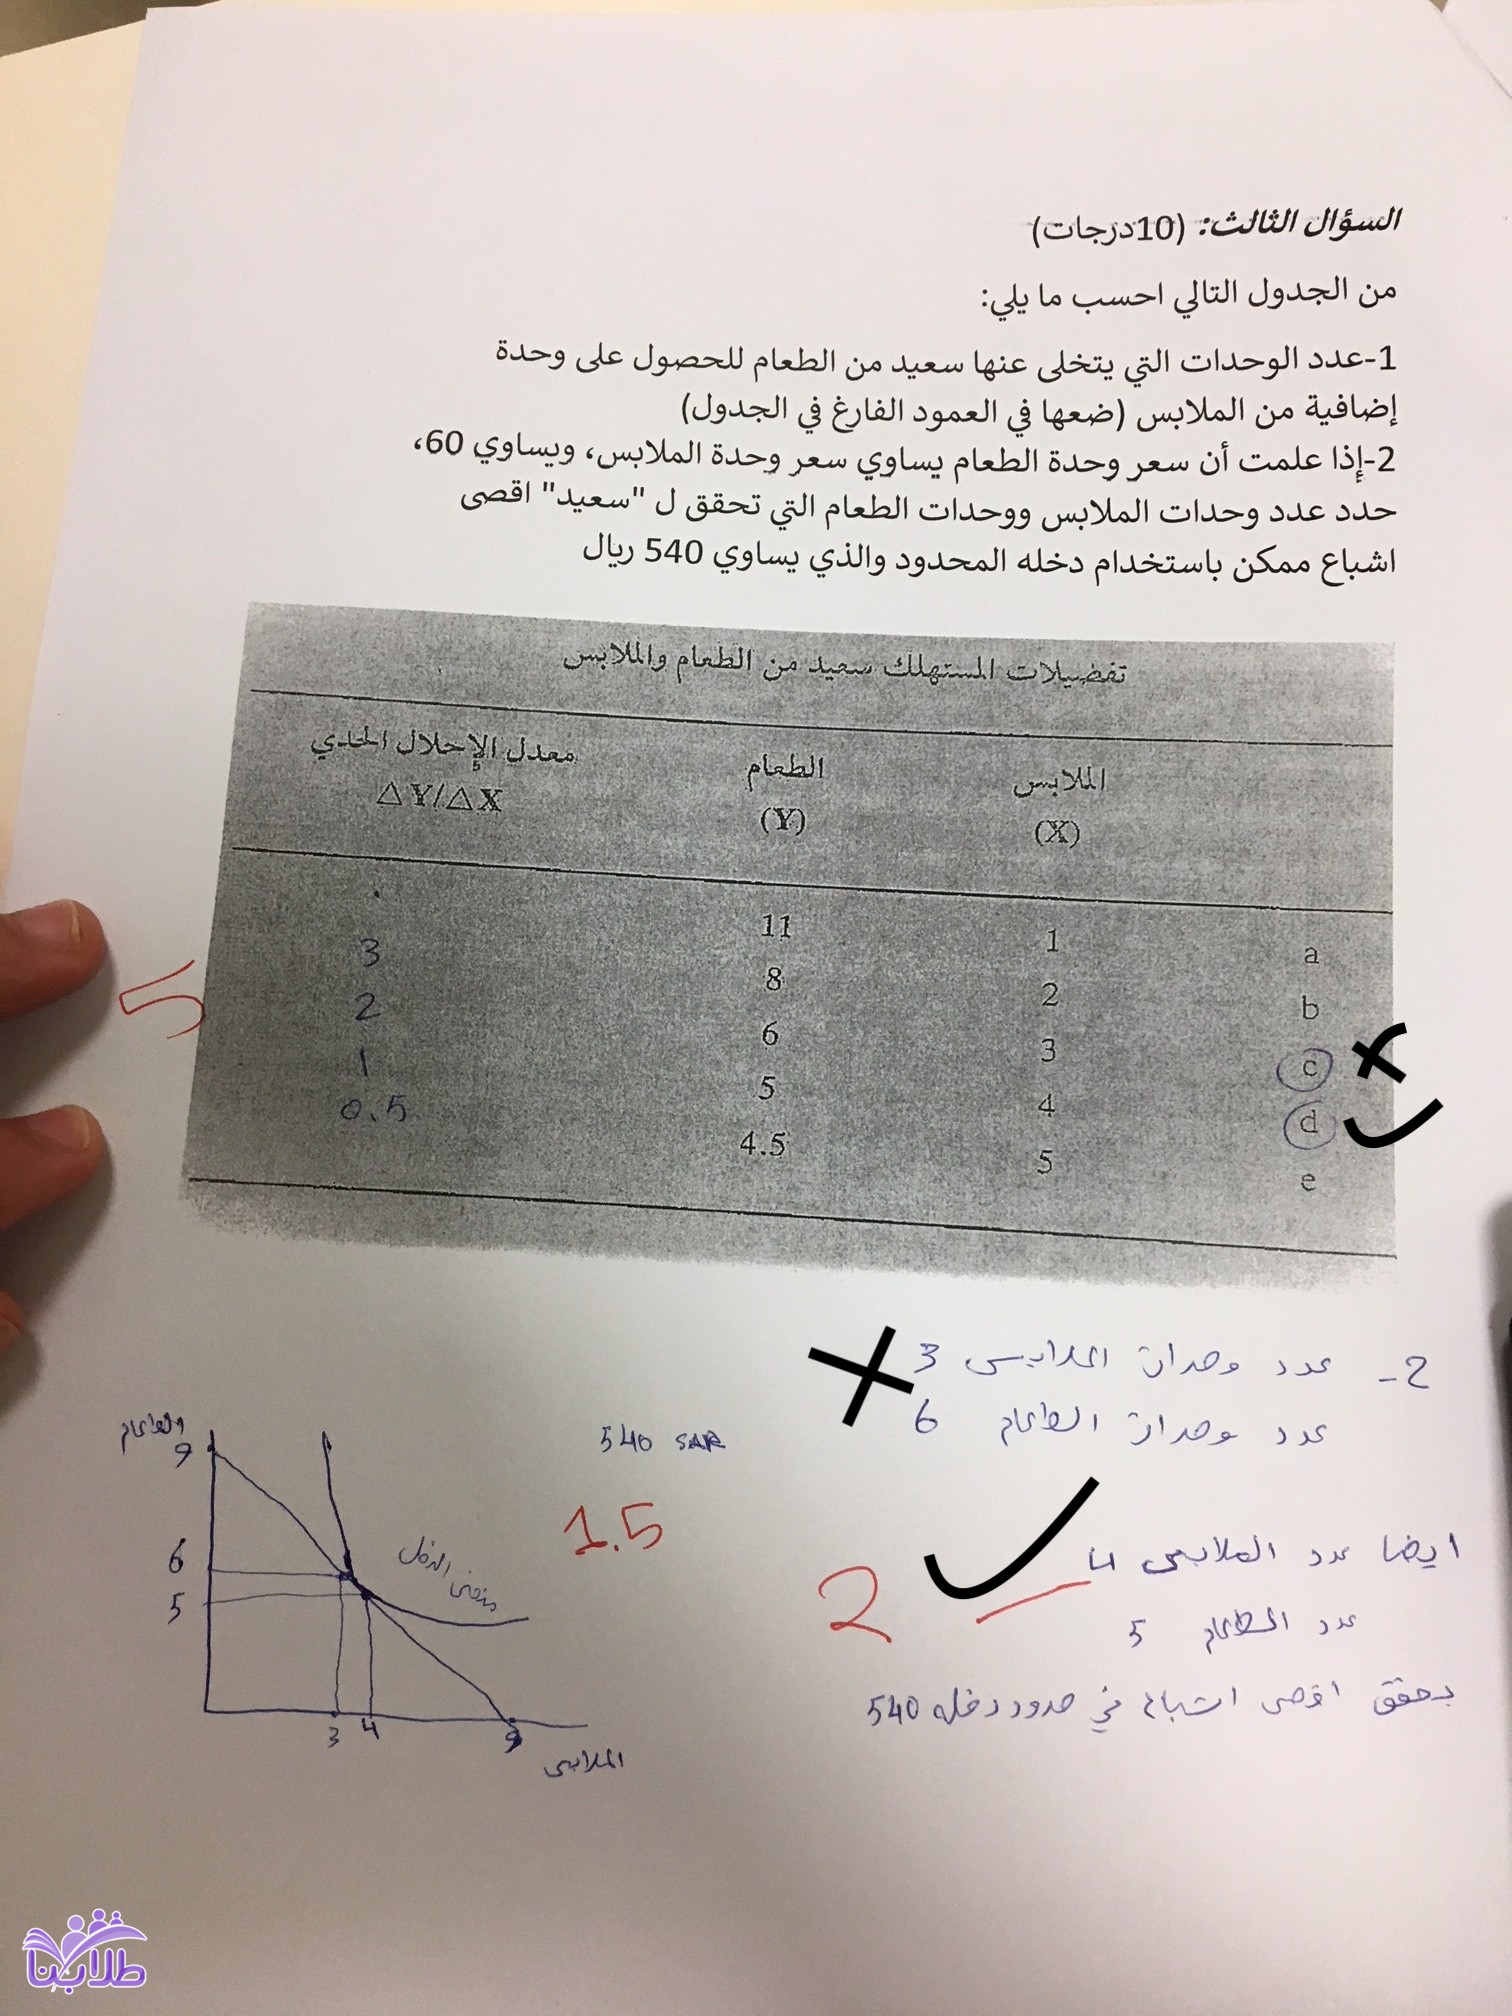 السؤال الثالث: (10درجات)
من الجدول التالي احسب ما يلي:
1-عدد الوحدات التي يتخلى عنها سعيد من الطعام للحصول على وحدة
إضافية من الملابس (ضعها في العمود الفارغ في الجدول)
2-إذا علمت أن سعر وحدة الطعام يساوي سعر وحدة الملابس، ويساوي 60،
حدد عدد وحدات الملابس ووحدات الطعام التي تحقق ل "سعيد" اقصى
اشباع ممكن باستخدام دخله المحدود والذي يساوي 540 ريال
تفضيلات المستهلك سعيد من الطعام والملابس
الملابس الطعام معدل الإحلال الحدي
(X) (Y) △Y/△X
a 1 11
b 2 8 3
c 3 6 2
d 4 5 1
e 5 4.5 0.5
5
2- عدد وحدات الملابس 3
عدد وحدات الطعام 6
540 SAR
1.5
ايضا عدد الملابس 4
2
عدد الطعام 5
يحقق اقصى اشباع في حدود دخله 540
الطعام
9
6
5
منحنى الدخل
3 4 9
الملابس
طلابنا